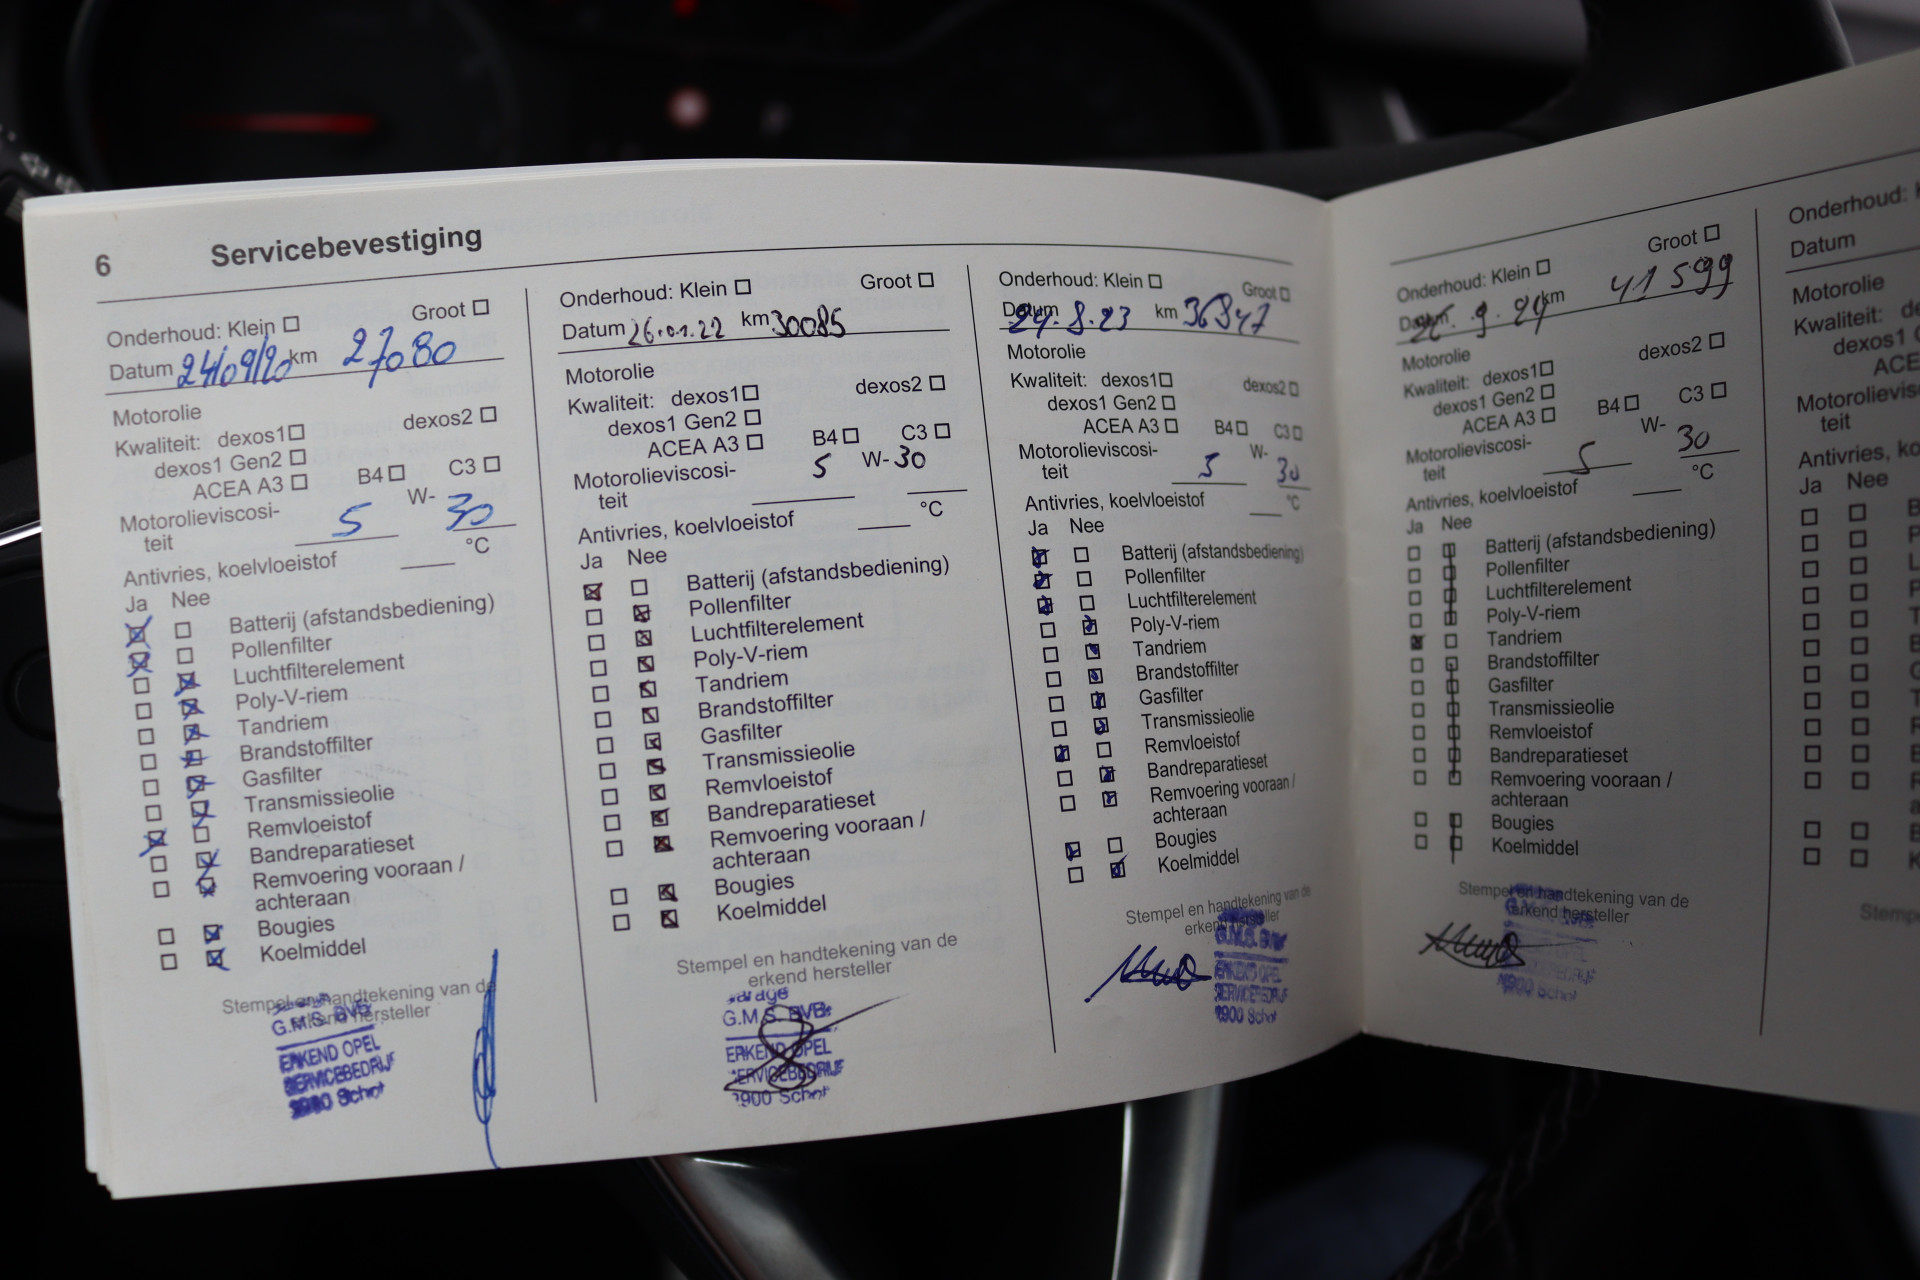 6 Servicebevestiging
Onderhoud: Klein Groot
Datum 24/09/20 km 27080
Motorolie
Kwaliteit: dexos1 dexos2
dexos1 Gen2
ACEA A3 B4 C3
Motorolieviscosi-
teit 5 W- 30
Antivries, koelvloeistof °C
Ja Nee
Batterij (afstandsbediening)
Pollenfilter
Luchtfilterelement
Poly-V-riem
Tandriem
Brandstoffilter
Gasfilter
Transmissieolie
Remvloeistof
Bandreparatieset
Remvoering vooraan /
achteraan
Bougies
Koelmiddel
Stempel en handtekening van de
erkend hersteller
G.M.S. BVB
ERKEND OPEL
SERVICEBEDRIJF
Schot
Onderhoud: Klein Groot
Datum 26.01.22 km 30085
Motorolie
Kwaliteit: dexos1 dexos2
dexos1 Gen2
ACEA A3 B4 C3
Motorolieviscosi-
teit 5 W- 30
Antivries, koelvloeistof °C
Ja Nee
Batterij (afstandsbediening)
Pollenfilter
Luchtfilterelement
Poly-V-riem
Tandriem
Brandstoffilter
Gasfilter
Transmissieolie
Remvloeistof
Bandreparatieset
Remvoering vooraan /
achteraan
Bougies
Koelmiddel
Stempel en handtekening van de
erkend hersteller
Garage
G.M.S. BVB
ERKEND OPEL
SERVICEBEDRIJF
Schot
Onderhoud: Klein Groot
Datum 24.8.23 km 36847
Motorolie
Kwaliteit: dexos1 dexos2
dexos1 Gen2
ACEA A3 B4 C3
Motorolieviscosi-
teit 5 W- 30
Antivries, koelvloeistof °C
Ja Nee
Batterij (afstandsbediening)
Pollenfilter
Luchtfilterelement
Poly-V-riem
Tandriem
Brandstoffilter
Gasfilter
Transmissieolie
Remvloeistof
Bandreparatieset
Remvoering vooraan /
achteraan
Bougies
Koelmiddel
Stempel en handtekening van de
erkend hersteller
G.M.S.
ERKEND OPEL
SERVICEBEDRIJF
Schot
Onderhoud: Klein Groot
Datum km 41599
Motorolie
Kwaliteit: dexos1 dexos2
dexos1 Gen2
ACEA A3 B4 C3
Motorolieviscosi-
teit 5 W- 30
Antivries, koelvloeistof °C
Ja Nee
Batterij (afstandsbediening)
Pollenfilter
Luchtfilterelement
Poly-V-riem
Tandriem
Brandstoffilter
Gasfilter
Transmissieolie
Remvloeistof
Bandreparatieset
Remvoering vooraan /
achteraan
Bougies
Koelmiddel
Stempel en handtekening van de
erkend hersteller
Schot
Onderhoud:
Datum
Motorolie
Kwaliteit:
dexos1
ACE
Motorolievis
teit
Antivries, ko
Ja Nee
Stemp